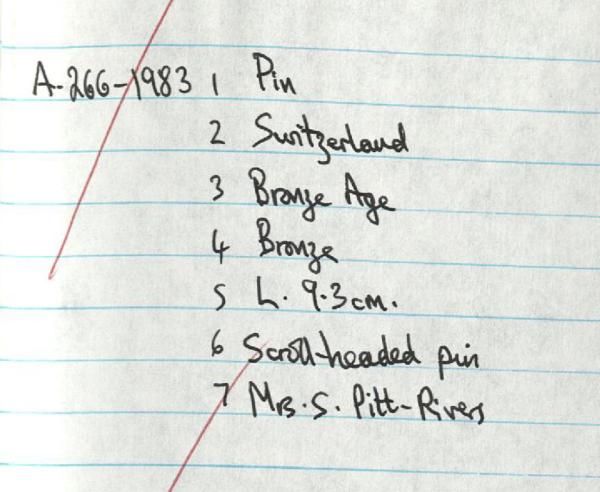 A-266-1983 1 Pin
2 Switzerland
3 Bronze Age
4 Bronze
5 L. 9.3cm.
6 Scroll-headed pin
7 Mrs. S. Pitt-Rivers